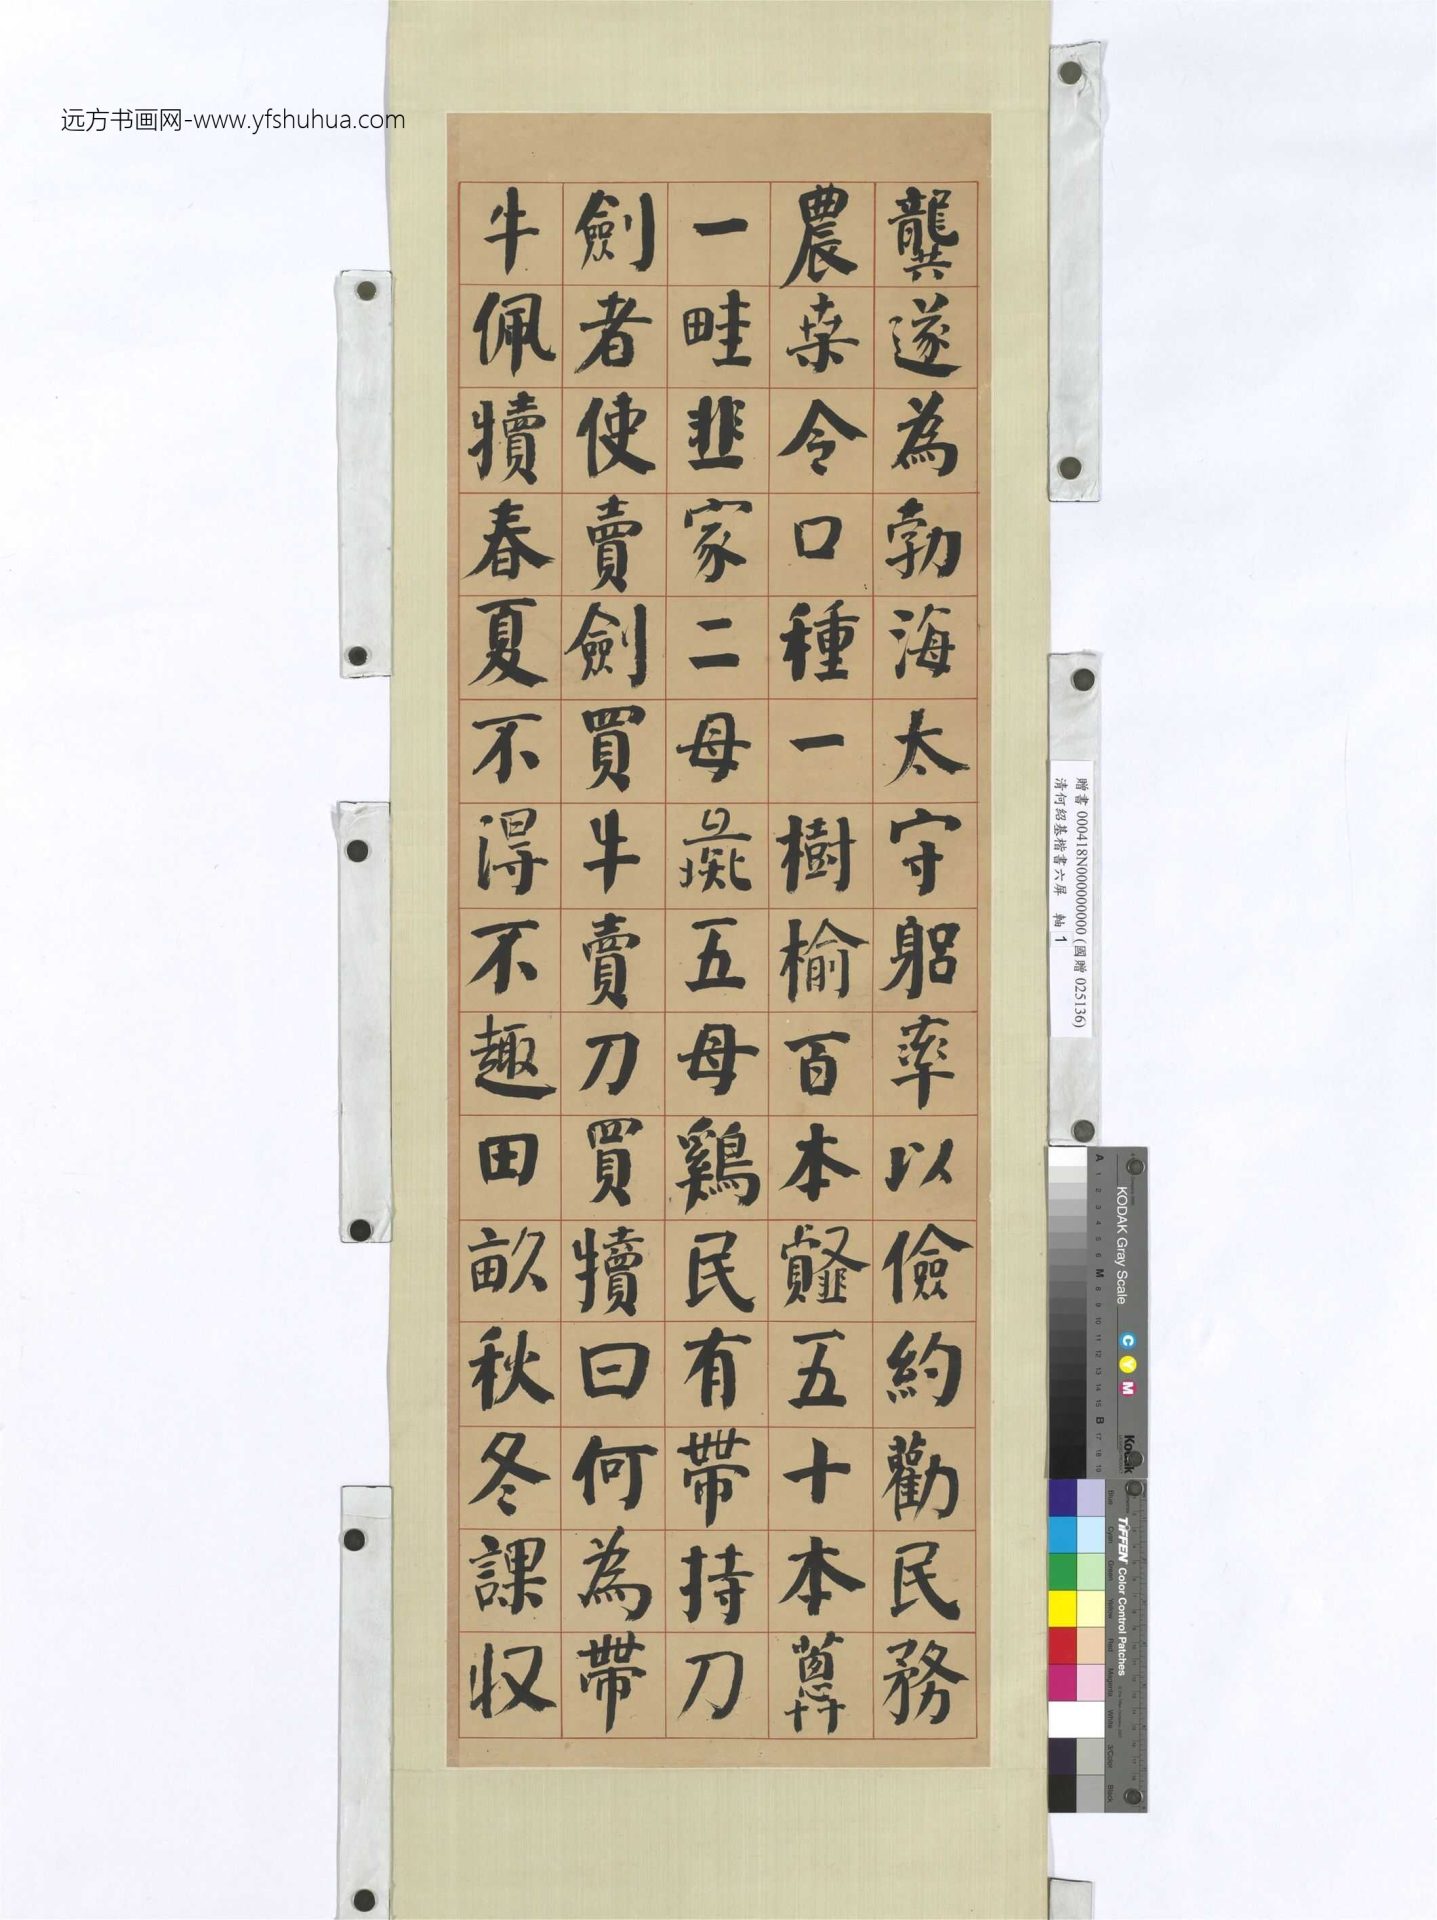 龔遂為勃海太守躬率以儉約勸民務
農桒令口種一樹榆百本䪥五十本蔥
一畦韭家二母彘五母鷄民有帶持刀
劍者使賣劍買牛賣刀買犢曰何為帶
牛佩犢春夏不得不趣田畝秋冬課収
远方书画网-www.yfshuhua.com
贈書 000418N000000000 (國贈 025136)
清何紹基楷書六屏 軸 1
KODAK Gray Scale
A 1 2 3 4 5 6 M 8 9 10 11 12 13 14 15 B 17 18 19
C Y M
Kodak
TIFFEN Color Control Patches
Blue Cyan Green Yellow Red Magenta White 3/Color Black